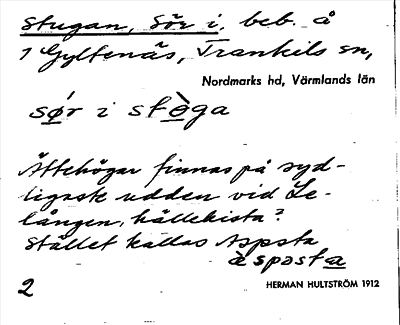 Stugan, Sör i, beb. å
1 Gyltenäs, Trankils sn,
Nordmarks hd, Värmlands län
sø̀r i stò̤ga
Ättehögar finnas på syd-
ligaste udden vid Le-
lången, hällekista?
Stället kallas Aspsta
àspəsta
2
HERMAN HULTSTRÖM 1912